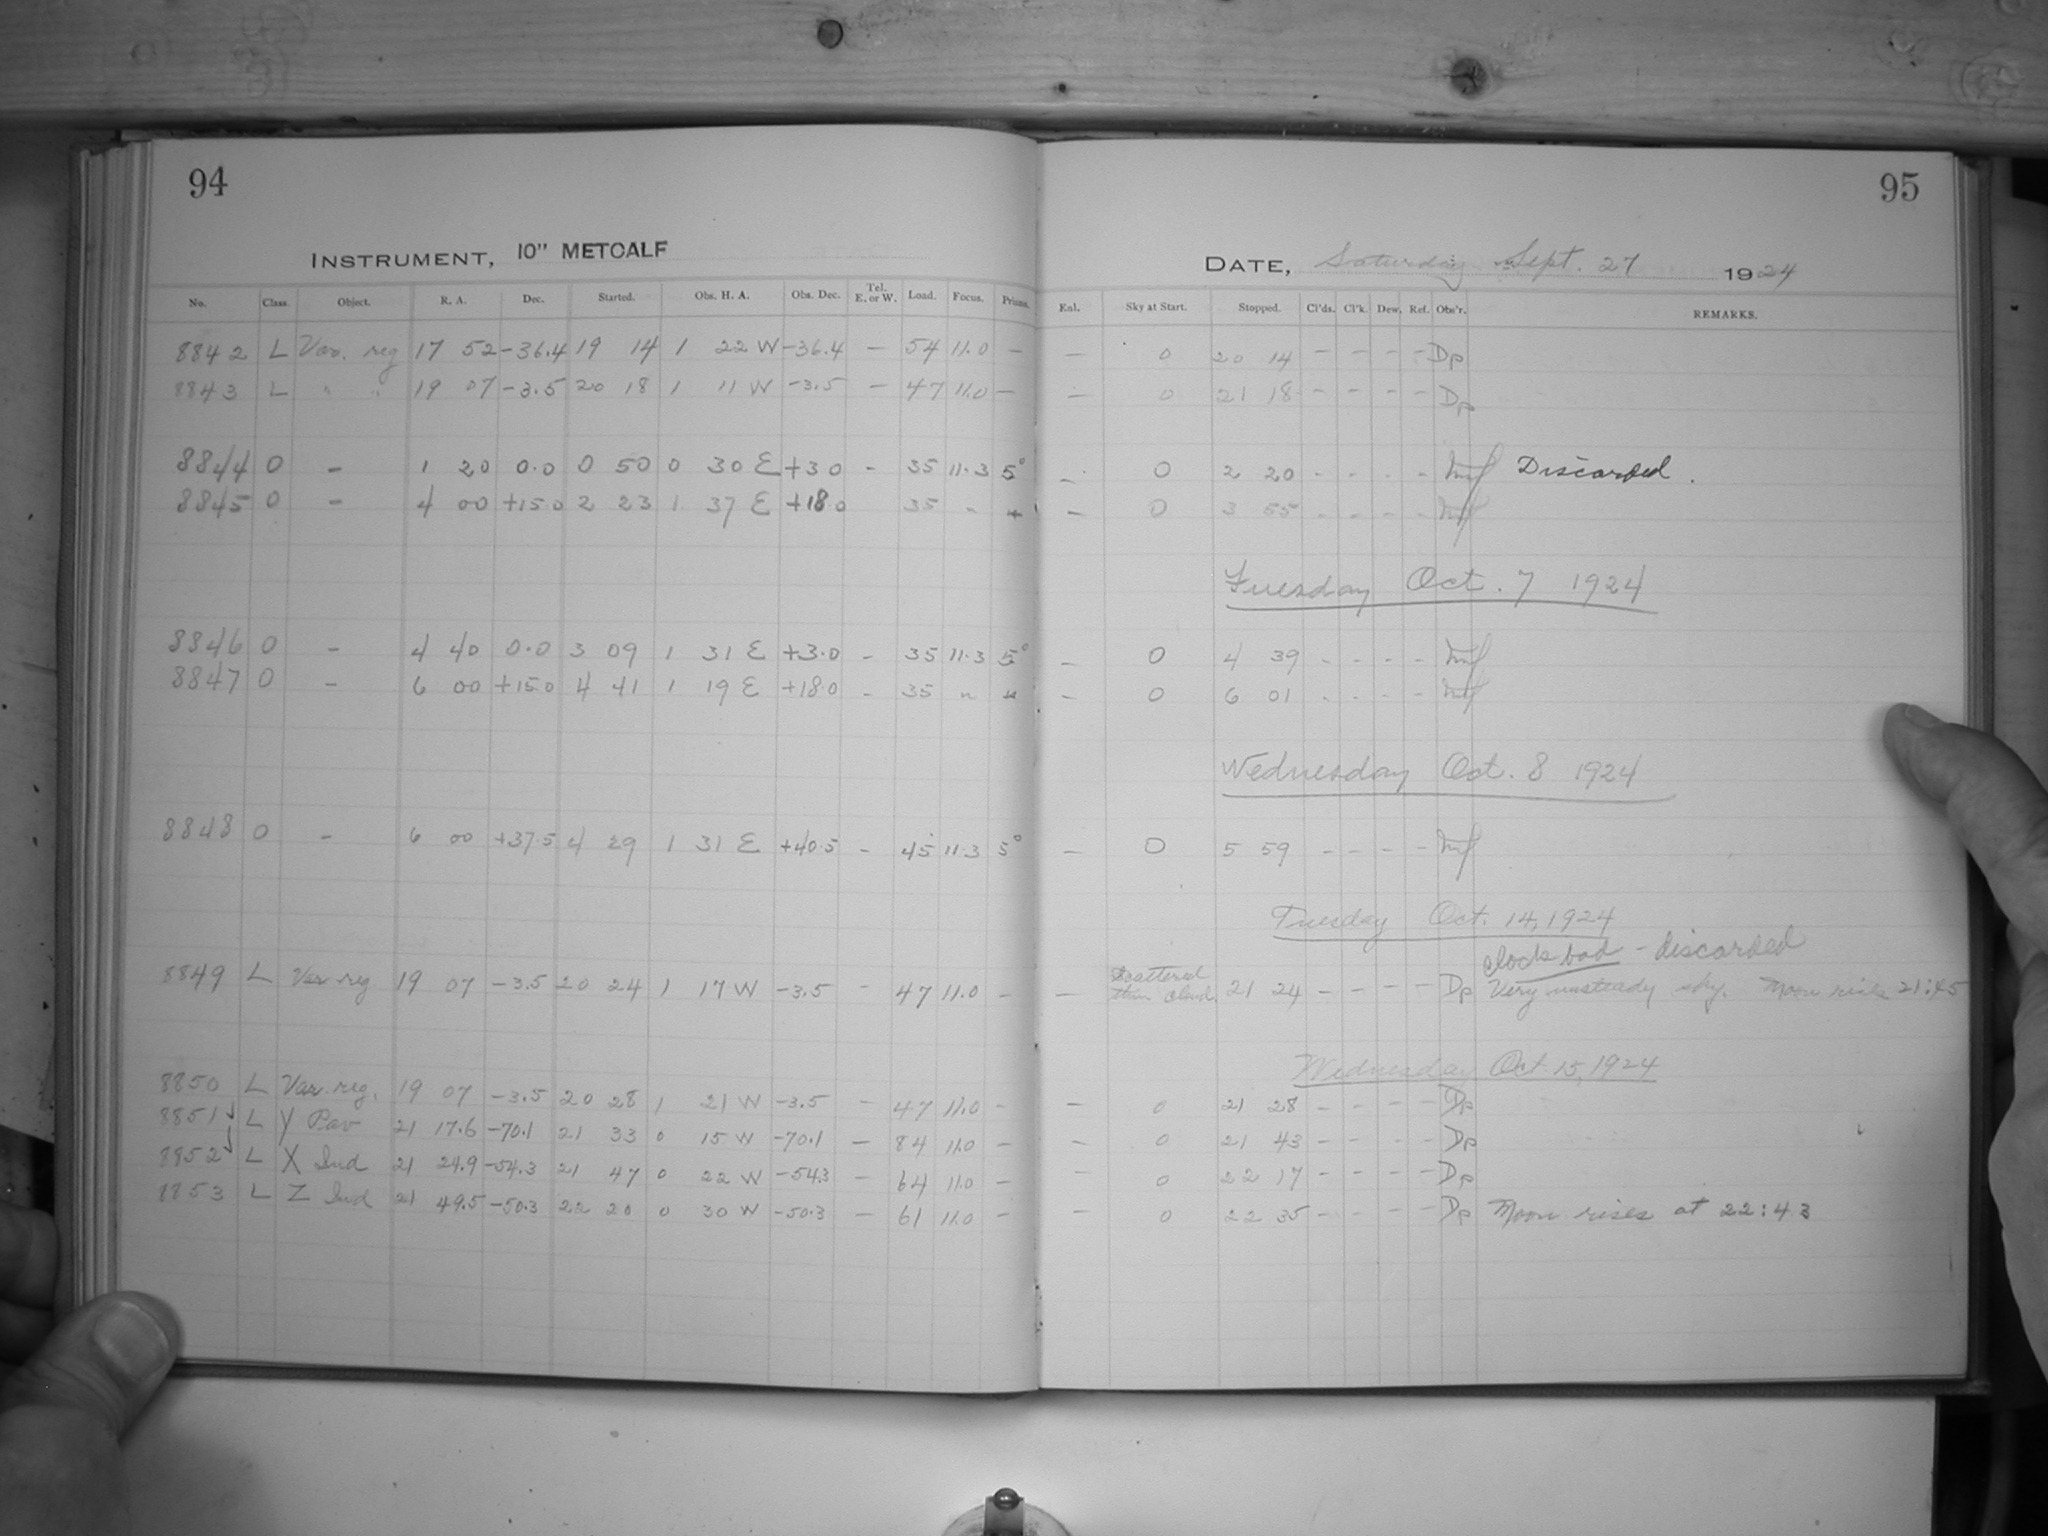 94
95
INSTRUMENT, 10" METCALF
DATE, Saturday Sept. 27 1924
No. Class. Object. R. A. Dec. Started. Obs. H. A. Obs. Dec. Tel. E. or W. Load. Focus. Prisms. Enl. Sky at Start. Stopped. Cl'ds. Cl'k. Dew. Ref. Obs'r. REMARKS.
8842 L Var. reg 17 52 -36.4 19 14 1 22 W -36.4 - 54 11.0 - - 0 20 14 - - - - Dp
8843 L " " 19 07 -3.5 20 18 1 11 W -3.5 - 47 11.0 - - 0 21 18 - - - - Dp
8844 O - 1 20 0.0 0 50 0 30 E +3 0 - 35 11.3 5° - 0 2 20 - - - - Discarded.
8845 O - 4 00 +15.0 2 23 1 37 E +18 0 35 " " - 0 3 55 - - - -
Tuesday Oct. 7 1924
8846 O - 4 40 0.0 3 09 1 31 E +3.0 - 35 11.3 5° - 0 4 39 - - - -
8847 O - 6 00 +15.0 4 41 1 19 E +18.0 - 35 " " - 0 6 01 - - - -
Wednesday Oct. 8 1924
8848 O - 6 00 +37.5 4 29 1 31 E +40.5 - 45 11.3 5° - 0 5 59 - - - -
Tuesday Oct. 14, 1924
clock bad - discarded
8849 L Var reg 19 07 -3.5 20 24 1 17 W -3.5 - 47 11.0 - - Scattered thin cloud 21 24 - - - - Dp Very unsteady sky. Moon rises 21:45
Wednesday Oct. 15, 1924
8850 L Var. reg. 19 07 -3.5 20 28 1 21 W -3.5 - 47 11.0 - - 0 21 28 - - - - Dp
8851 L Y Pav 21 17.6 -70.1 21 33 0 15 W -70.1 - 84 11.0 - - 0 21 43 - - - - Dp
8852 L X Ind 21 24.9 -54.3 21 47 0 22 W -54.3 - 64 11.0 - - 0 22 17 - - - - Dp
8853 L Z Ind 21 49.5 -50.3 22 20 0 30 W -50.3 - 61 11.0 - - 0 22 35 - - - - Dp Moon rises at 22:43